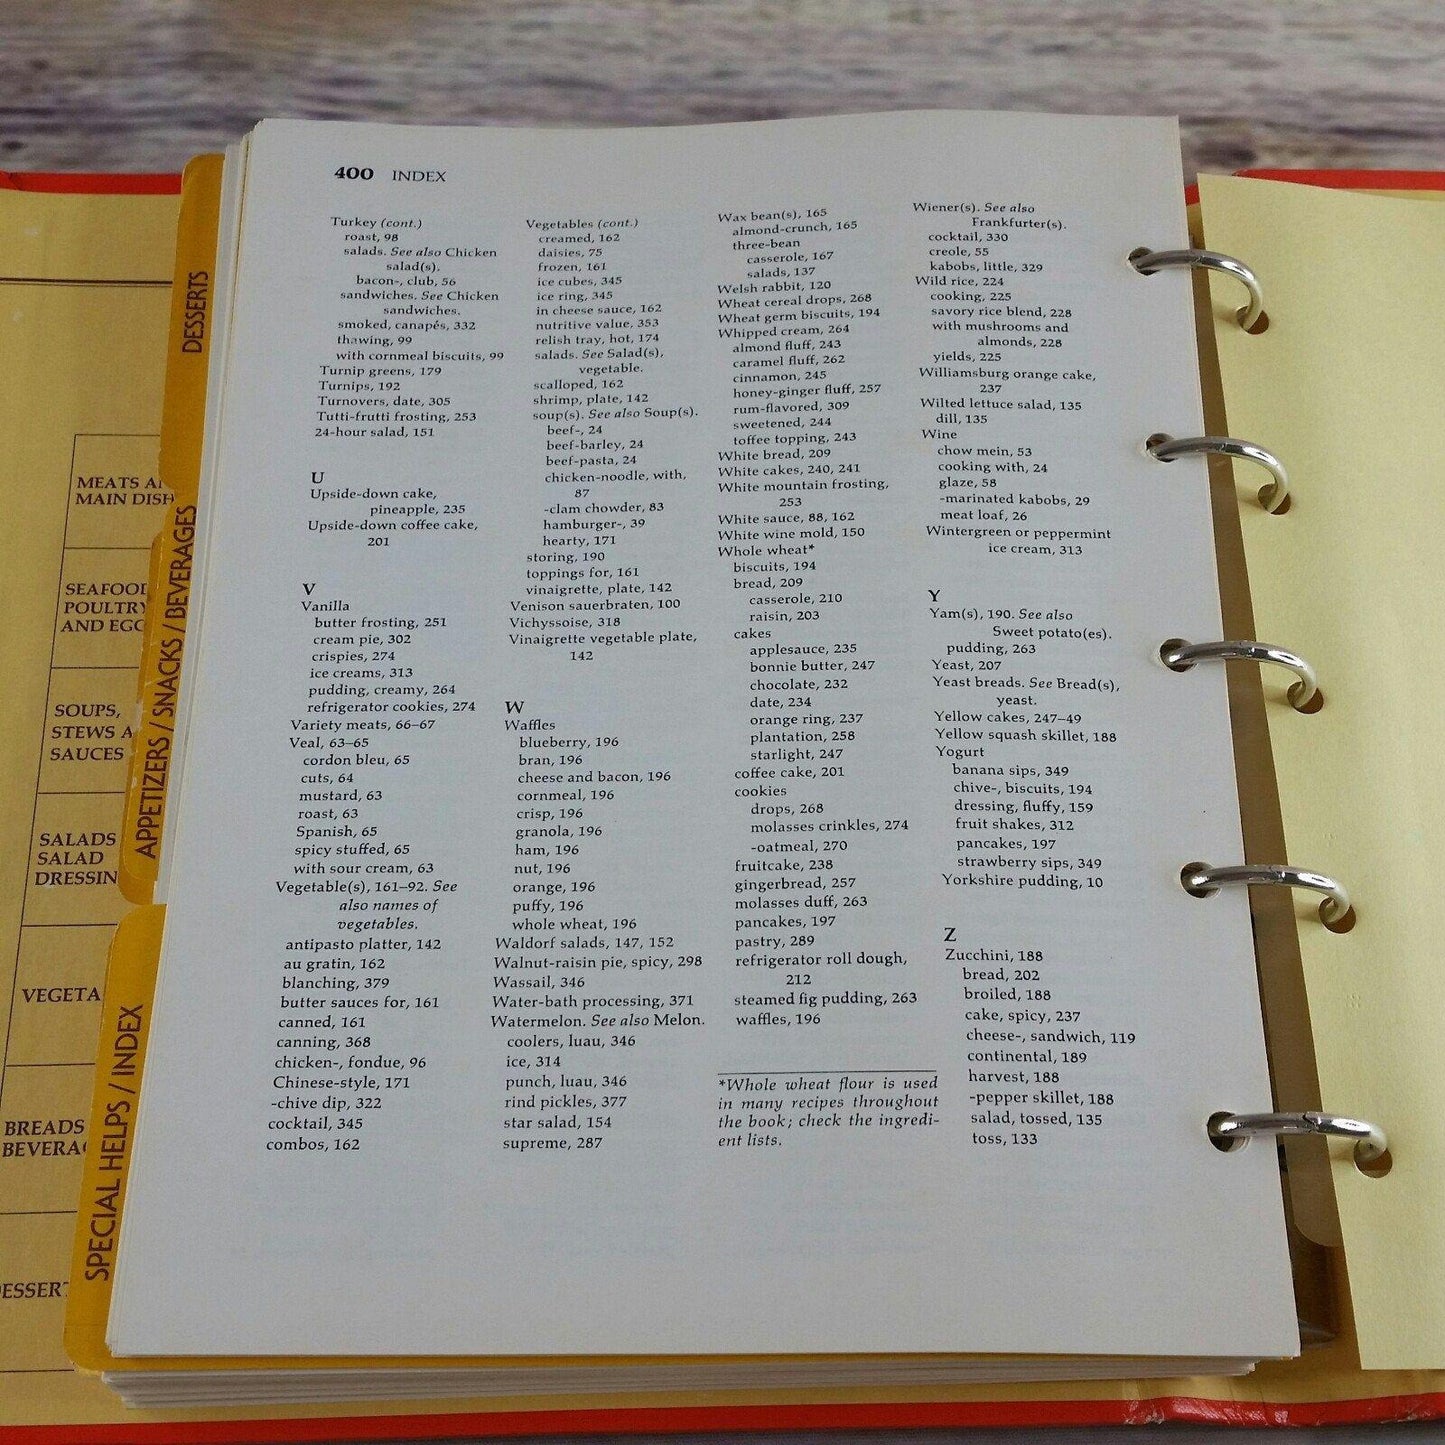 400 INDEX
Turkey (cont.)
roast, 98
salads. See also Chicken
salad(s).
bacon-, club, 56
sandwiches. See Chicken
sandwiches.
smoked, canapés, 332
thawing, 99
with cornmeal biscuits, 99
Turnip greens, 179
Turnips, 192
Turnovers, date, 305
Tutti-frutti frosting, 253
24-hour salad, 151
U
Upside-down cake,
pineapple, 235
Upside-down coffee cake,
201
V
Vanilla
butter frosting, 251
cream pie, 302
crispies, 274
ice creams, 313
pudding, creamy, 264
refrigerator cookies, 274
Variety meats, 66–67
Veal, 63–65
cordon bleu, 65
cuts, 64
mustard, 63
roast, 63
Spanish, 65
spicy stuffed, 65
with sour cream, 63
Vegetable(s), 161–92. See
also names of
vegetables.
antipasto platter, 142
au gratin, 162
blanching, 379
butter sauces for, 161
canned, 161
canning, 368
chicken-, fondue, 96
Chinese-style, 171
-chive dip, 322
cocktail, 345
combos, 162
Vegetables (cont.)
creamed, 162
daisies, 75
frozen, 161
ice cubes, 345
ice ring, 345
in cheese sauce, 162
nutritive value, 353
relish tray, hot, 174
salads. See Salad(s),
vegetable.
scalloped, 162
shrimp, plate, 142
soup(s). See also Soup(s).
beef-, 24
beef-barley, 24
beef-pasta, 24
chicken-noodle, with,
87
-clam chowder, 83
hamburger-, 39
hearty, 171
storing, 190
toppings for, 161
vinaigrette, plate, 142
Venison sauerbraten, 100
Vichyssoise, 318
Vinaigrette vegetable plate,
142
W
Waffles
blueberry, 196
bran, 196
cheese and bacon, 196
cornmeal, 196
crisp, 196
granola, 196
ham, 196
nut, 196
orange, 196
puffy, 196
whole wheat, 196
Waldorf salads, 147, 152
Walnut-raisin pie, spicy, 298
Wassail, 346
Water-bath processing, 371
Watermelon. See also Melon.
coolers, luau, 346
ice, 314
punch, luau, 346
rind pickles, 377
star salad, 154
supreme, 287
Wax bean(s), 165
almond-crunch, 165
three-bean
casserole, 167
salads, 137
Welsh rabbit, 120
Wheat cereal drops, 268
Wheat germ biscuits, 194
Whipped cream, 264
almond fluff, 243
caramel fluff, 262
cinnamon, 245
honey-ginger fluff, 257
rum-flavored, 309
sweetened, 244
toffee topping, 243
White bread, 209
White cakes, 240, 241
White mountain frosting,
253
White sauce, 88, 162
White wine mold, 150
Whole wheat*
biscuits, 194
bread, 209
casserole, 210
raisin, 203
cakes
applesauce, 235
bonnie butter, 247
chocolate, 232
date, 234
orange ring, 237
plantation, 258
starlight, 247
coffee cake, 201
cookies
drops, 268
molasses crinkles, 274
-oatmeal, 270
fruitcake, 238
gingerbread, 257
molasses duff, 263
pancakes, 197
pastry, 289
refrigerator roll dough,
212
steamed fig pudding, 263
waffles, 196
*Whole wheat flour is used
in many recipes throughout
the book; check the ingredi-
ent lists.
Wiener(s). See also
Frankfurter(s).
cocktail, 330
creole, 55
kabobs, little, 329
Wild rice, 224
cooking, 225
savory rice blend, 228
with mushrooms and
almonds, 228
yields, 225
Williamsburg orange cake,
237
Wilted lettuce salad, 135
dill, 135
Wine
chow mein, 53
cooking with, 24
glaze, 58
-marinated kabobs, 29
meat loaf, 26
Wintergreen or peppermint
ice cream, 313
Y
Yam(s), 190. See also
Sweet potato(es).
pudding, 263
Yeast, 207
Yeast breads. See Bread(s),
yeast.
Yellow cakes, 247–49
Yellow squash skillet, 188
Yogurt
banana sips, 349
chive-, biscuits, 194
dressing, fluffy, 159
fruit shakes, 312
pancakes, 197
strawberry sips, 349
Yorkshire pudding, 10
Z
Zucchini, 188
bread, 202
broiled, 188
cake, spicy, 237
cheese-, sandwich, 119
continental, 189
harvest, 188
-pepper skillet, 188
salad, tossed, 135
toss, 133
DESSERTS
APPETIZERS / SNACKS / BEVERAGES
SPECIAL HELPS / INDEX
MEATS
MAIN DISH
SEAFOOD
POULTRY
AND EGG
SOUPS,
STEWS
SAUCES
SALADS
SALAD
DRESSIN
VEGETA
BREADS
BEVERA
DESSERT